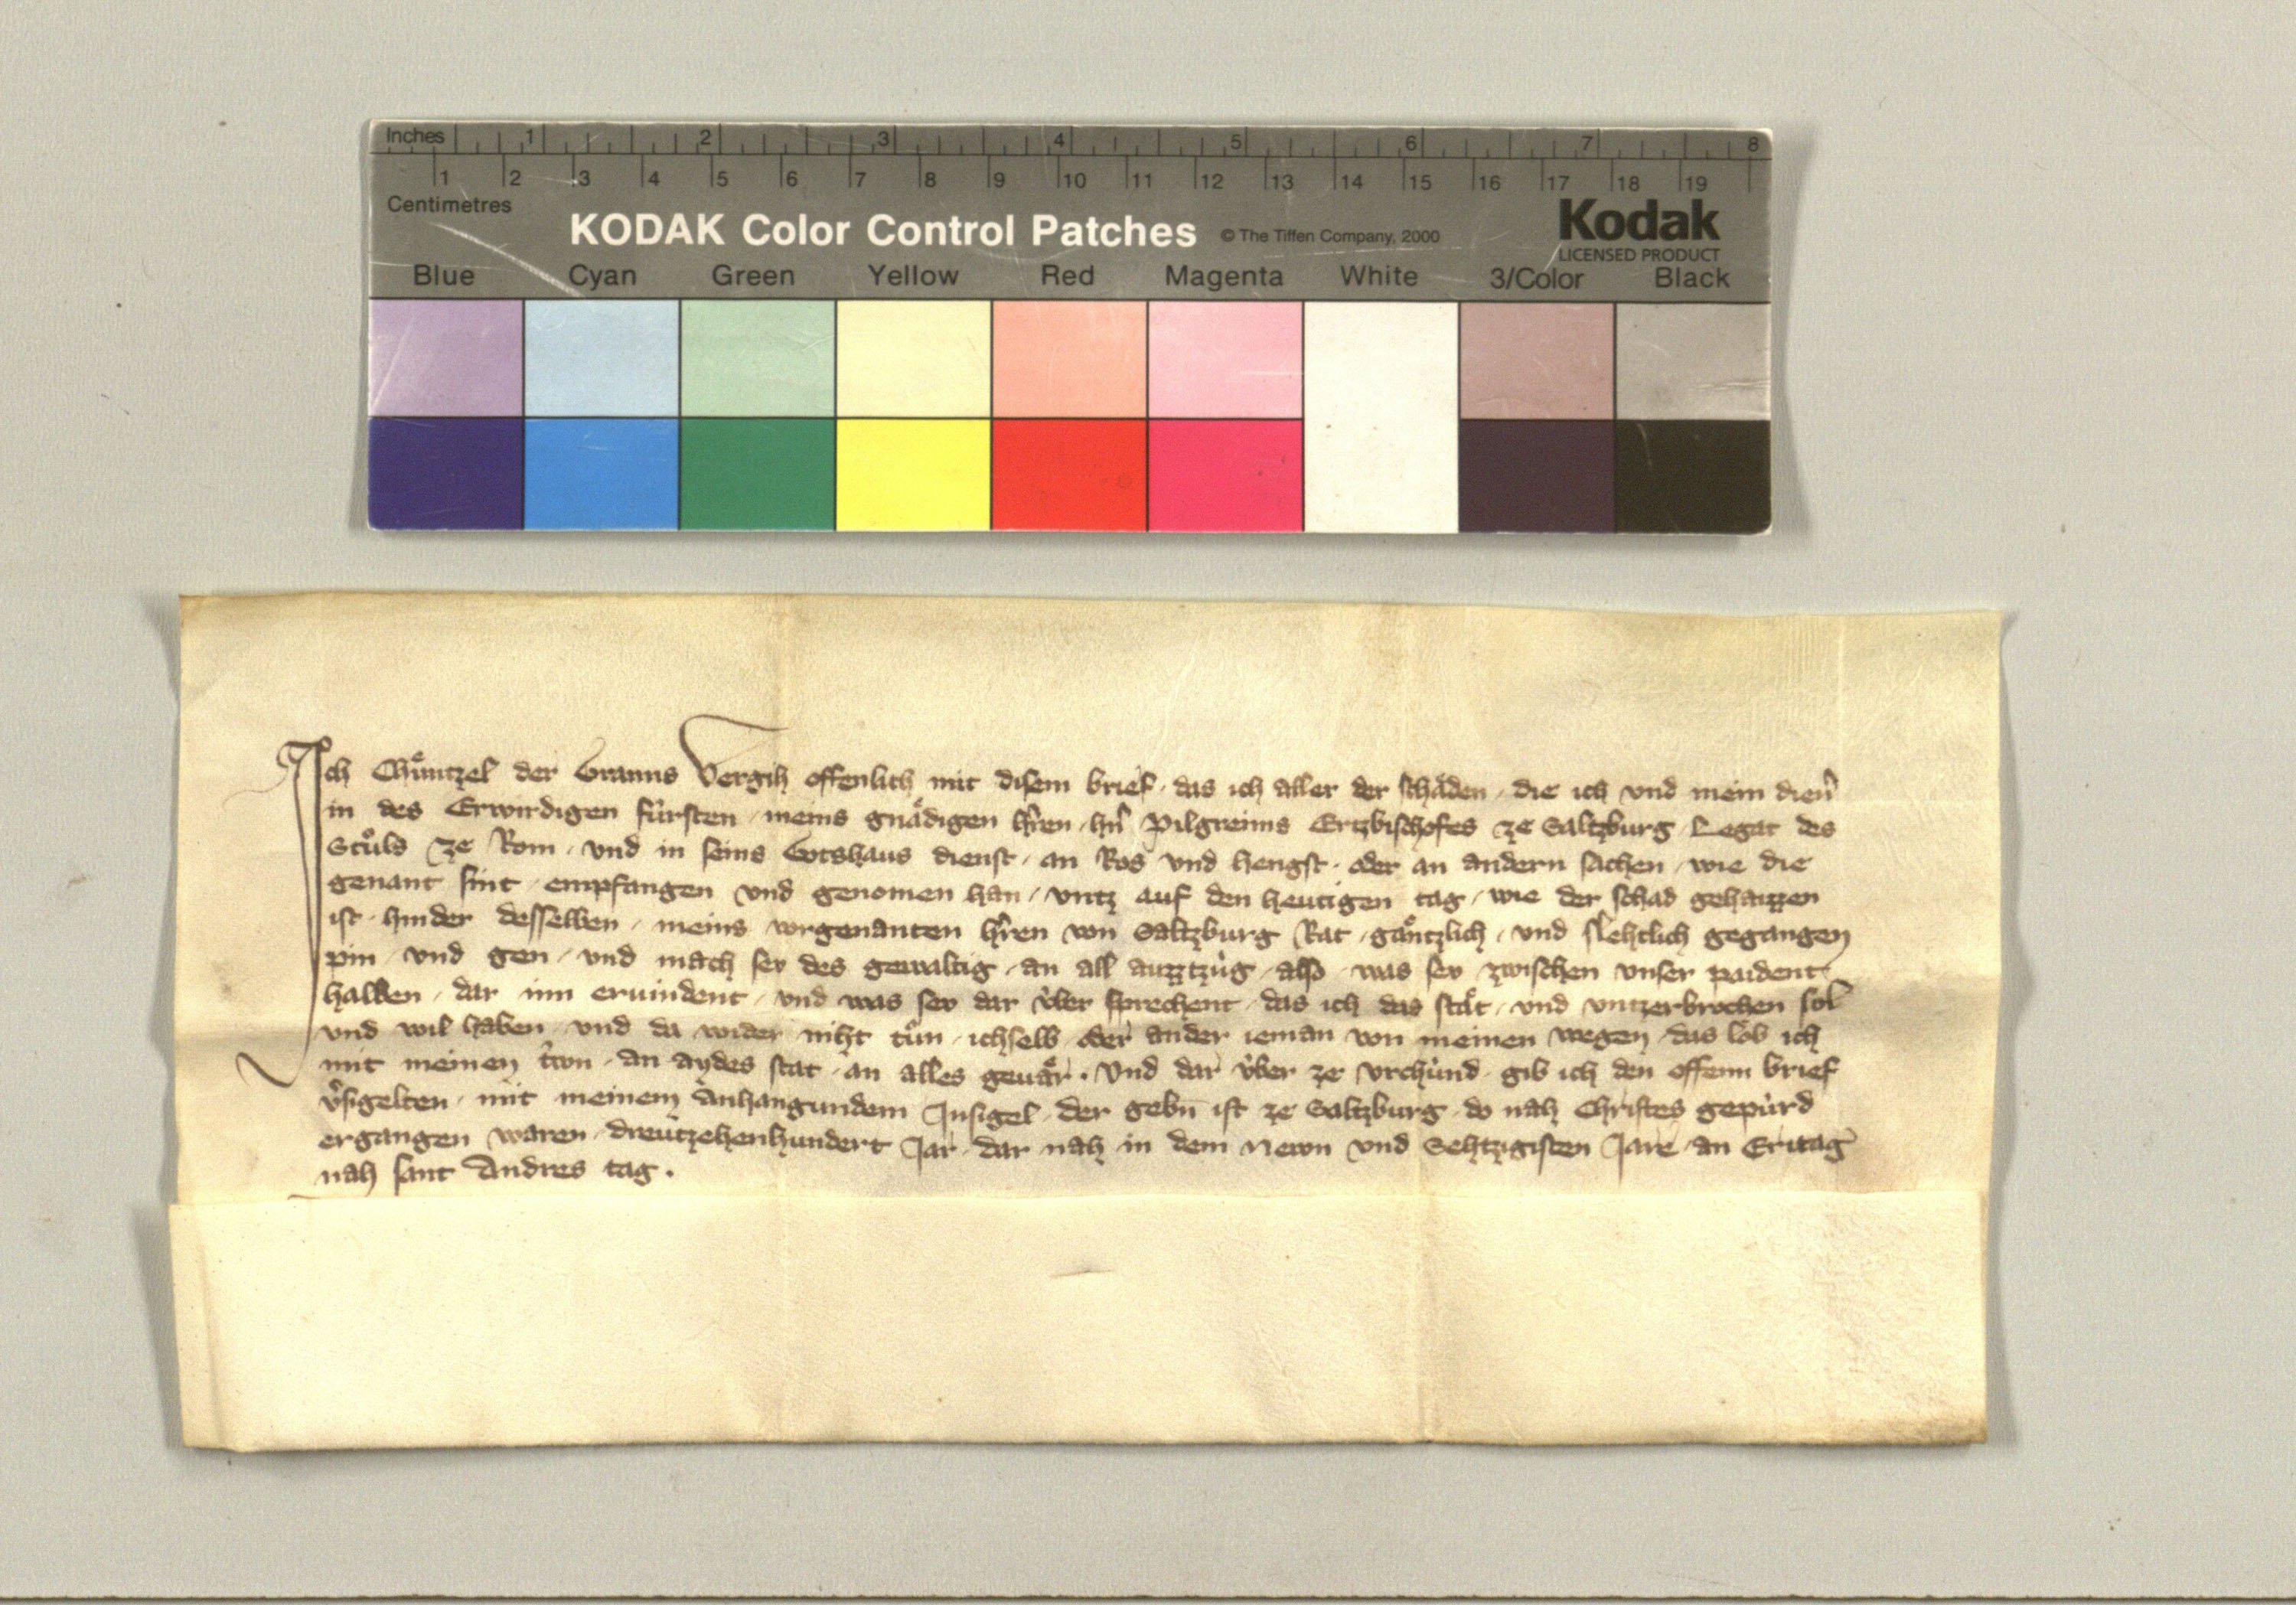 Inches 1 2 3 4 5 6 7 8
1 2 3 4 5 6 7 8 9 10 11 12 13 14 15 16 17 18 19
Centimetres
KODAK Color Control Patches © The Tiffen Company, 2000 Kodak
LICENSED PRODUCT
Blue Cyan Green Yellow Red Magenta White 3/Color Black
Ich Chuͤntzel der Granns Vergih offenlich mit disem brief · das ich aller der schaͤden · die ich vnd mein dien̄
in des Erwirdigen fuͤrsten · meins gnaͤdigen h̄ren · hn̄ Pilgreims Ertzbischofes ze Saltzburg · Legat des
Stuͤls ze Rom · vnd in seins Gotshaus dienst · an Ros vnd hengst · oder an andern sachen · wie die
genant sint · empfangen vnd genomen han · vntz auf den heutigen tag · wie der schad gehaizzen
ist · hinder desselben · meins vorgenanten h̄ren von Saltzburg Rat · gaͤntzlich · vnd slehtlich gegangen
pin · vnd gen · vnd mach sev des gewaltig · an all auzztzuͤg · also · was sev zwischen vnser paident
halben · dar inn ervindent · vnd was sev dar vͤber sprechent · das ich das staͤt · vnd vntzerbrochen sol
vnd wil haben · vnd da wider niht tuͤn · ichselb · oder ander ieman von meinen wegen · das lob ich
mit meinen trͤwn · an aydes stat · an alles geuaͤr · Vnd dar vͤber ze vrchuͤnd · gib ich den offenn brief
v̄sigelten · mit meinem Anhangundem Insigel · der gebn̄ ist ze Saltzburg · do nah Christes gepuͤrd
ergangen waren · dreutzehenhundert Jar · dar nah in dem Newn vnd Sehtzigisten Jare · an Eritag
nah sant Andres tag ·